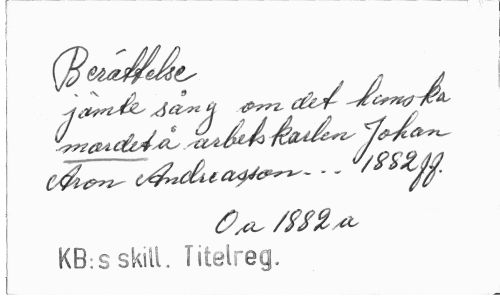 Berättelse
jämte sång om det hemska
mordet å arbetskarlen Johan
Aron Andreasson... 1882 ff.
Oa 1882 a
KB:s skill. Titelreg.